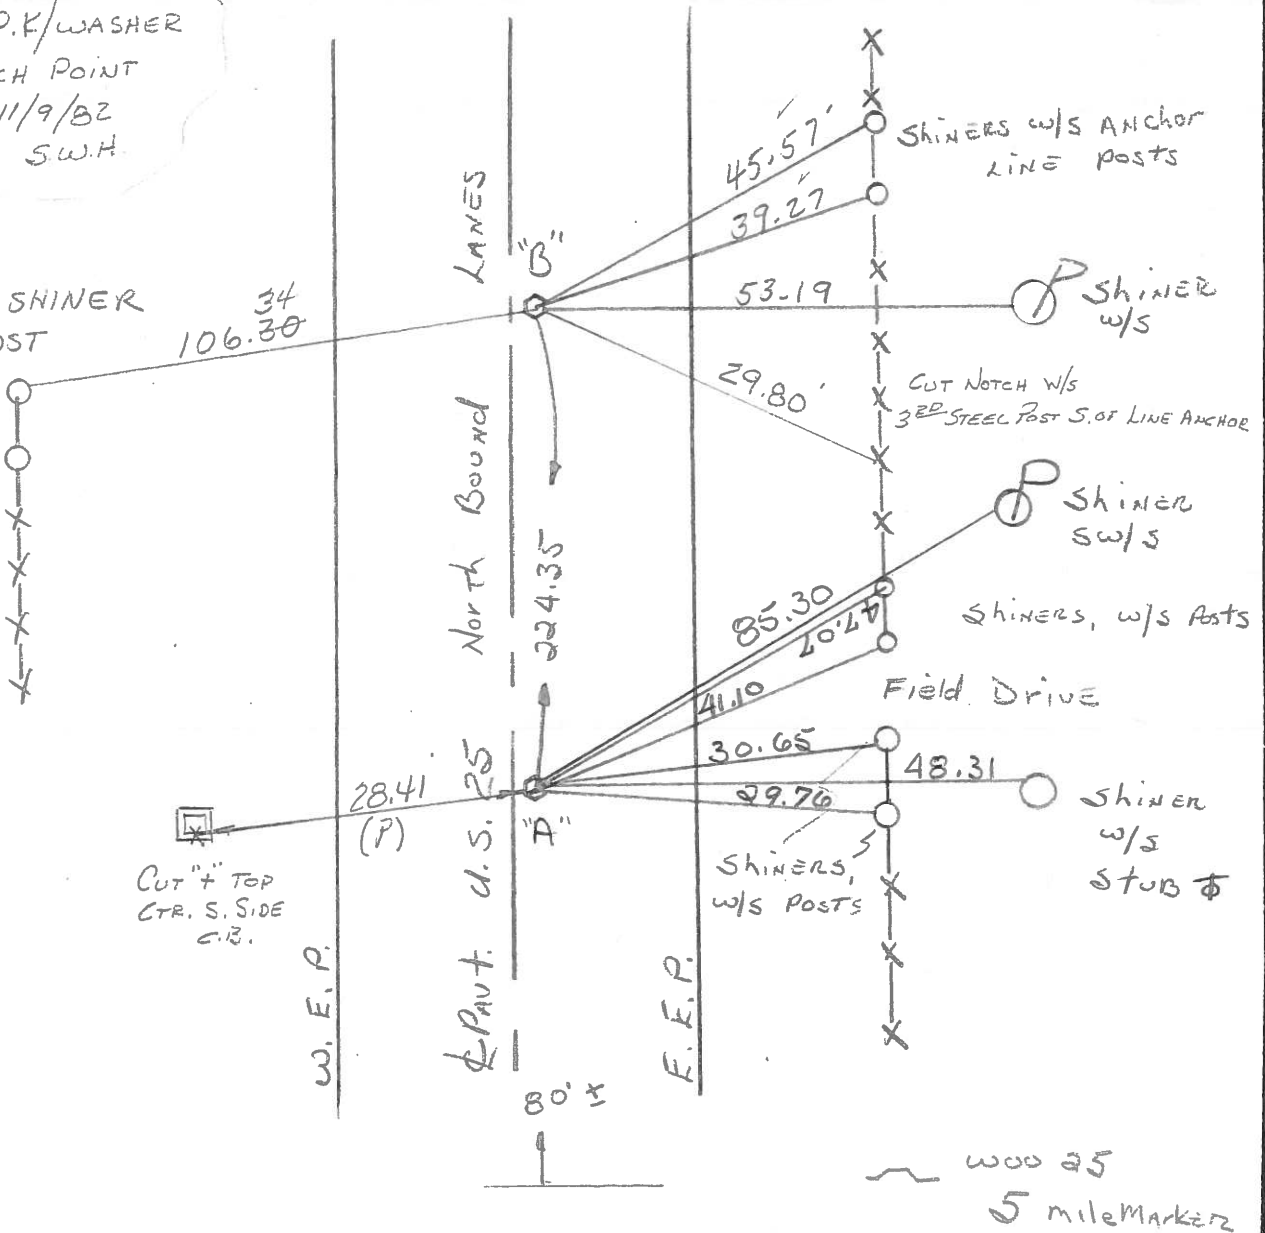 P.K/WASHER
CH POINT
11/9/82
S.W.H.
SHINER
OST
34
106.30
LANES
"B"
45.57'
39.27
53.19
29.80'
Shiners w/s Anchor
Line Posts
Shiner
w/s
Cut Notch w/s
3RD Steel Post S. of Line Anchor
Shiner
SW/S
North Bound
224.35
85.30
47.07
41.10
Shiners, w/s Posts
Field Drive
30.65
48.31
29.76
Shiner
w/s
Stub
Shiners,
w/s Posts
28.41'
(P)
"A"
Cut "+" Top
Ctr. S. Side
C.B.
W. E. P.
℄ Pav't. U.S. 25
E. E. P.
80' ±
WOO 25
5 mile Marker